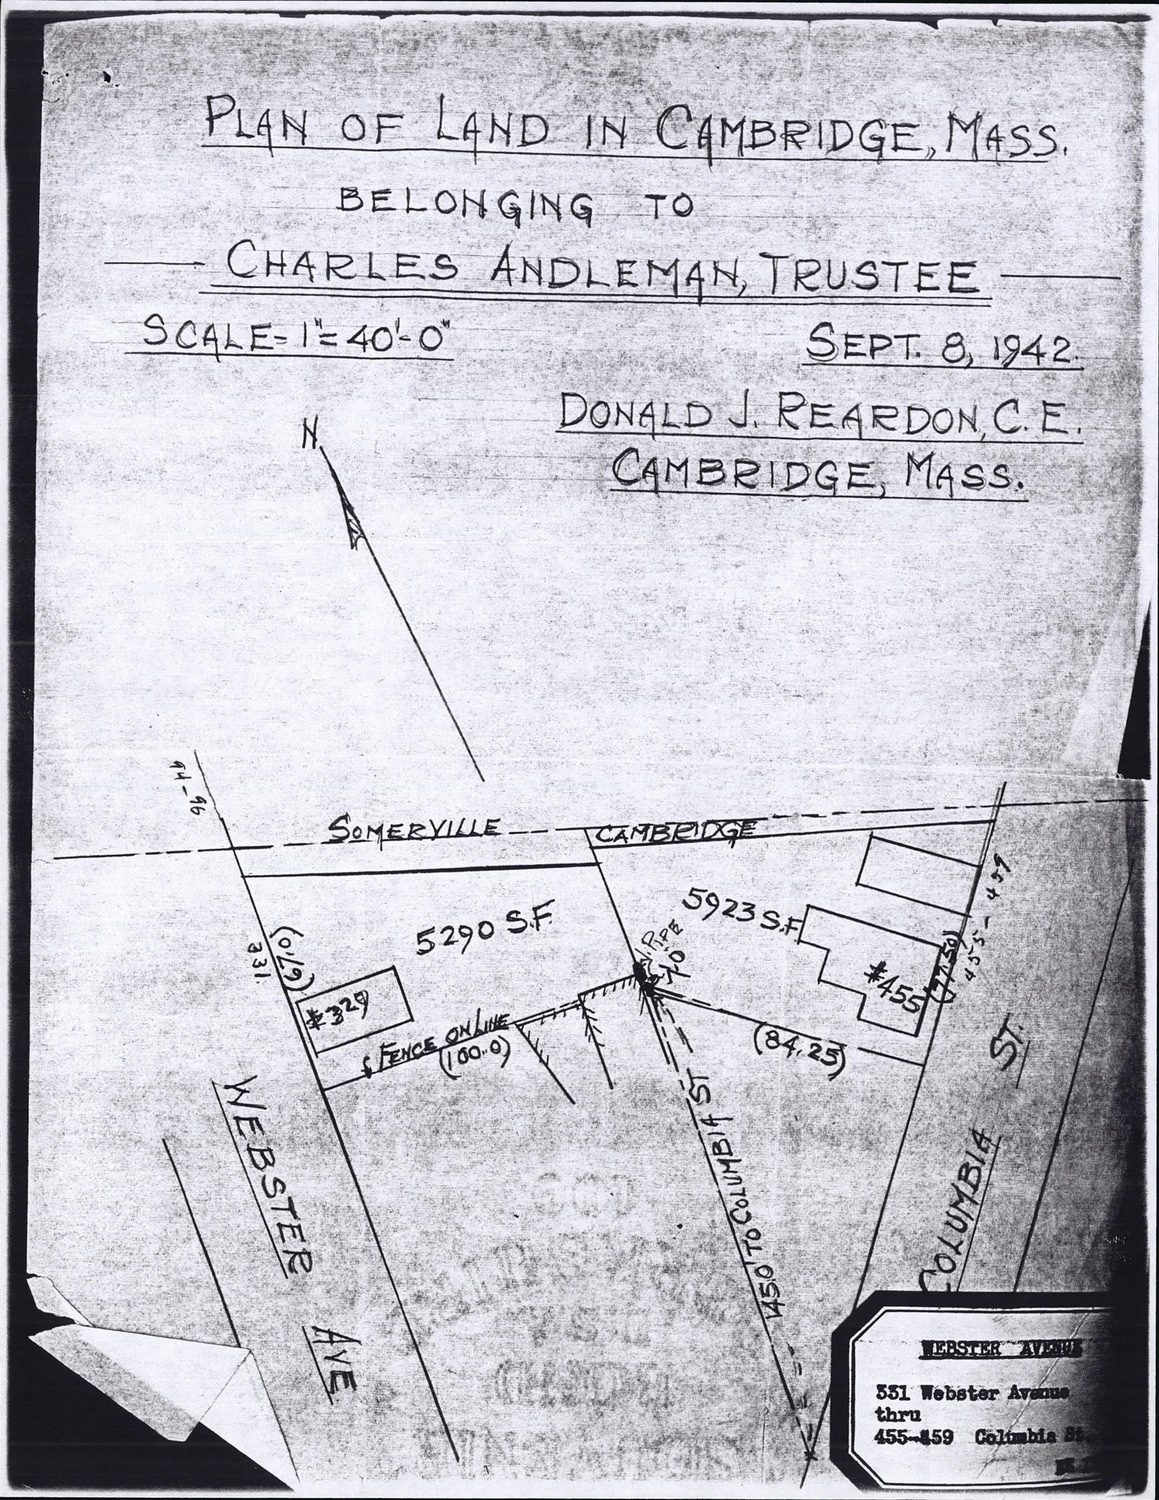 PLAN OF LAND IN CAMBRIDGE, MASS.
BELONGING TO
CHARLES ANDLEMAN, TRUSTEE
SCALE= 1"= 40'-0"
SEPT. 8, 1942.
DONALD J. REARDON, C.E.
CAMBRIDGE, MASS.
N.
94-96
SOMERVILLE
CAMBRIDGE
5290 S.F.
5923 S.F.
455-459
331
(67.0)
#329
PIPE
(77.50)
#455
FENCE ON LINE
(100.0)
(84.25)
WEBSTER AVE
145.0' TO COLUMBIA ST
COLUMBIA ST.
WEBSTER AVENUE
331 Webster Avenue
thru
455-459 Columbia St.